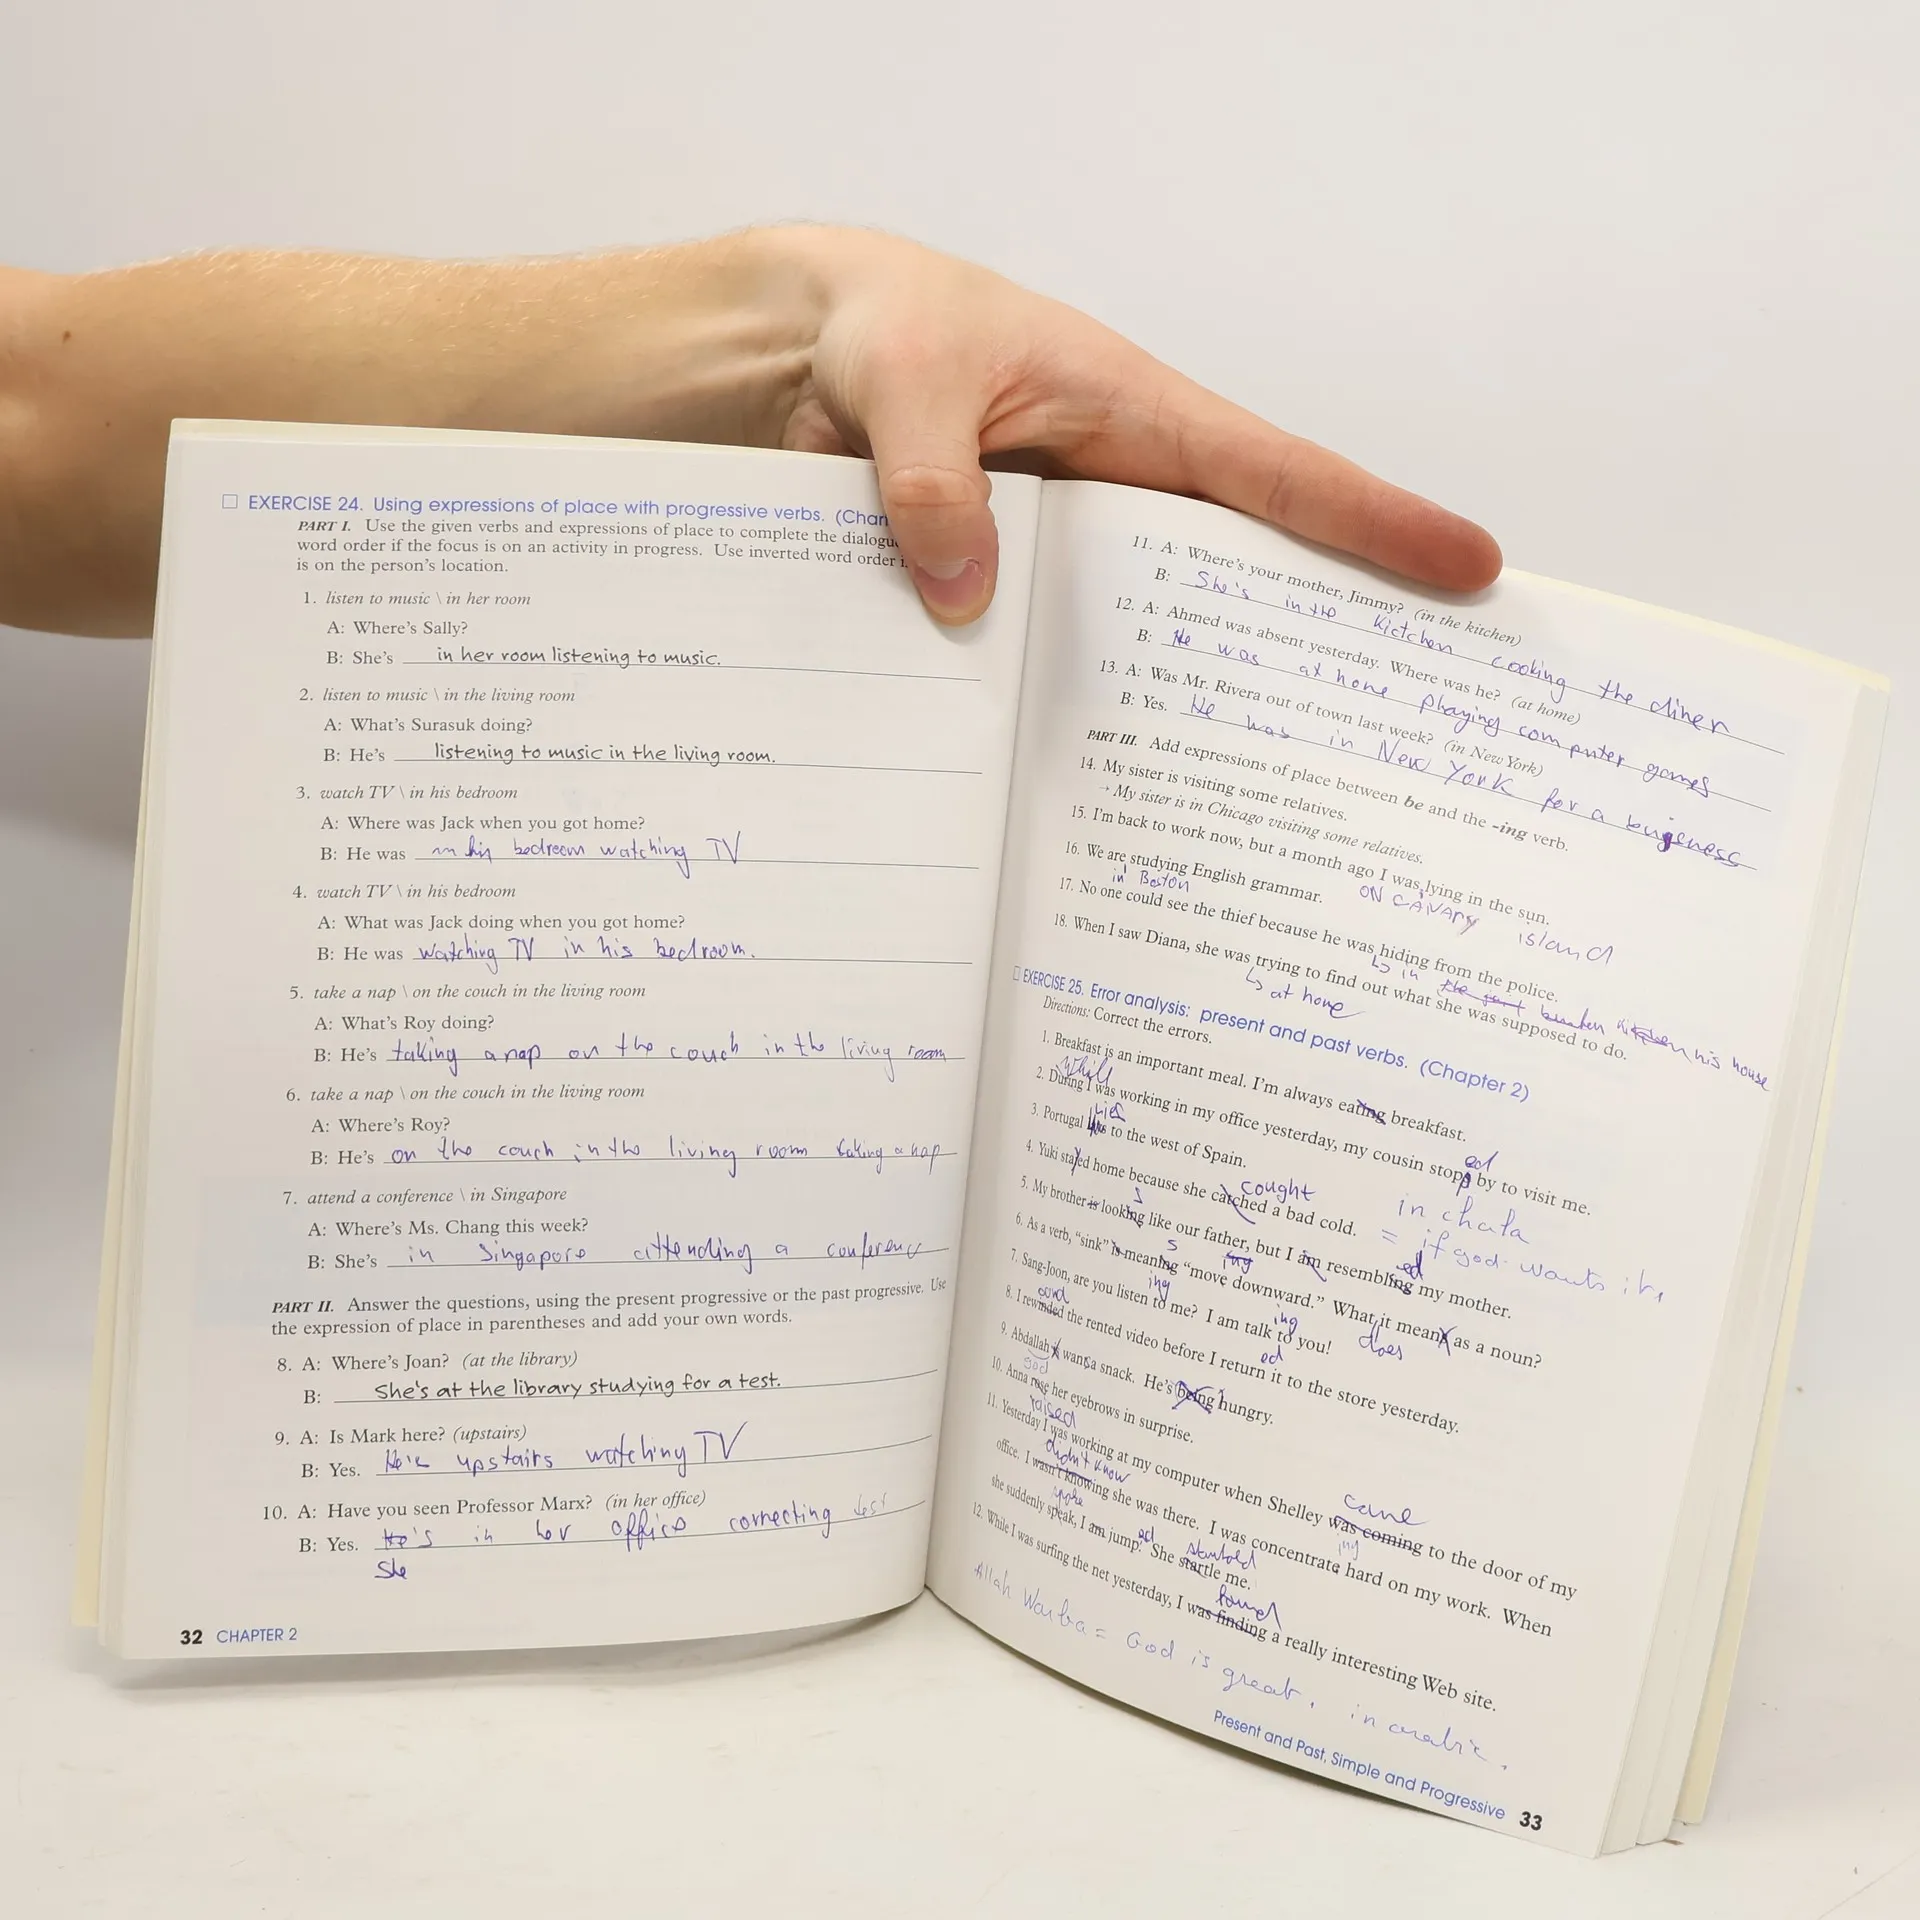 EXERCISE 24. Using expressions of place with progressive verbs. (Char
PART I. Use the given verbs and expressions of place to complete the dialogu
word order if the focus is on an activity in progress. Use inverted word order i
is on the person's location.
1. listen to music \ in her room
A: Where's Sally?
B: She's in her room listening to music.
2. listen to music \ in the living room
A: What's Surasuk doing?
B: He's listening to music in the living room.
3. watch TV \ in his bedroom
A: Where was Jack when you got home?
B: He was in his bedroom watching TV
4. watch TV \ in his bedroom
A: What was Jack doing when you got home?
B: He was watching TV in his bedroom.
5. take a nap \ on the couch in the living room
A: What's Roy doing?
B: He's taking a nap on the couch in the living room
6. take a nap \ on the couch in the living room
A: Where's Roy?
B: He's on the couch in the living room taking a nap
7. attend a conference \ in Singapore
A: Where's Ms. Chang this week?
B: She's in Singapore attending a conferenc
PART II. Answer the questions, using the present progressive or the past progressive. Use
the expression of place in parentheses and add your own words.
8. A: Where's Joan? (at the library)
B: She's at the library studying for a test.
9. A: Is Mark here? (upstairs)
B: Yes. He's upstairs watching TV
10. A: Have you seen Professor Marx? (in her office)
B: Yes. He's in her office correcting test
She
32 CHAPTER 2
11. A: Where's your mother, Jimmy? (in the kitchen)
B: She's in the kictchen cooking the diner
12. A: Ahmed was absent yesterday. Where was he? (at home)
B: He was at home playing computer games
13. A: Was Mr. Rivera out of town last week? (in New York)
B: Yes. He was in New York for a bugeness
PART III. Add expressions of place between be and the -ing verb.
14. My sister is visiting some relatives.
→ My sister is in Chicago visiting some relatives.
15. I'm back to work now, but a month ago I was lying in the sun.
ON CANARY island
16. We are studying English grammar.
in Boston
17. No one could see the thief because he was hiding from the police.
↳ in his house
18. When I saw Diana, she was trying to find out what she was supposed to do.
↳ at home
EXERCISE 25. Error analysis: present and past verbs. (Chapter 2)
Directions: Correct the errors.
1. Breakfast is an important meal. I'm always eating breakfast.
Whill
2. During I was working in my office yesterday, my cousin stops by to visit me.
ed
lies
3. Portugal lays to the west of Spain.
4. Yuki stayed home because she catched a bad cold.
cought
in chala
= if god wants it,
5. My brother is looking like our father, but I am resembling my mother.
s
ed
6. As a verb, "sink" is meaning "move downward." What it means as a noun?
s
ing
does
7. Sang-Joon, are you listen to me? I am talk to you!
ing
ing
8. I rewinded the rented video before I return it to the store yesterday.
ound
ed
9. Abdallah is want a snack. He's being hungry.
s
10. Anna rose her eyebrows in surprise.
raised
11. Yesterday I was working at my computer when Shelley was coming to the door of my
came
didn't know
office. I wasn't knowing she was there. I was concentrate hard on my work. When
ing
spoke
she suddenly speak, I am jump. She startle me.
ed
startled
12. While I was surfing the net yesterday, I was finding a really interesting Web site.
found
Allah Warba = God is great, in arabic.
Present and Past, Simple and Progressive 33